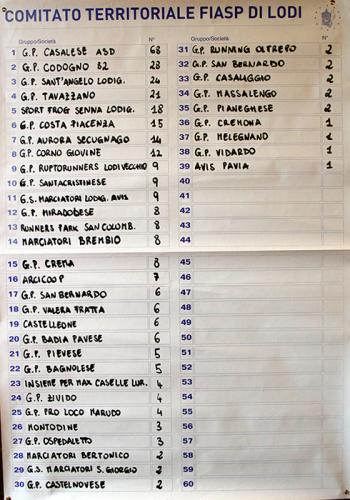 COMITATO TERRITORIALE FIASP DI LODI
Gruppo/Società N°
1 G.P. CASALESE ASD 68
2 G.P. CODOGNO 82 28
3 G.P. SANT'ANGELO LODIG. 24
4 G.P. TAVAZZANO 21
5 SPORT FROG SENNA LODIG. 18
6 G.P. COSTA PIACENZA 15
7 G.P. AURORA SECUGNAGO 14
8 G.P. CORNO GIOVINE 12
9 G.P. RUPTORUNNERS LODIVECCHIO 9
10 G.P. SANTACRISTINESE 9
11 G.S. MARCIATORI LODIG. AVIS 9
12 G.P. MIRADOLESE 8
13 RUNNERS PARK SAN COLOMB. 8
14 MARCIATORI BREMBIO 8
15 G.P. CREMA 8
16 ARCICOOP 7
17 G.P. SAN BERNARDO 6
18 G.P. VALERA FRATTA 6
19 CASTELLEONE 6
20 G.P. BADIA PAVESE 6
21 G.P. PIEVESE 5
22 G.P. BAGNOLESE 5
23 INSIEME PER MAX CASELLE LUR. 4
24 G.P. ZIVIDO 4
25 G.P. PRO LOCO MARUDO 4
26 MONTODINE 3
27 G.P. OSPEDALETTO 3
28 MARCIATORI BERTONICO 2
29 G.S. MARCIATORI S. GIORGIO 2
30 G.P. CASTELNOVESE 2
Gruppo/Società N°
31 G.P. RUNNING OLTREPO 2
32 G.P. SAN BERNARDO 2
33 G.P. CASALAGGIO 2
34 G.P. MASSALENGO 2
35 G.P. PIANEGHESE 2
36 G.P. CREMONA 1
37 G.P. MELEGNANO 1
38 G.P. VIDARDO 1
39 AVIS PAVIA 1
40
41
42
43
44
45
46
47
48
49
50
51
52
53
54
55
56
57
58
59
60